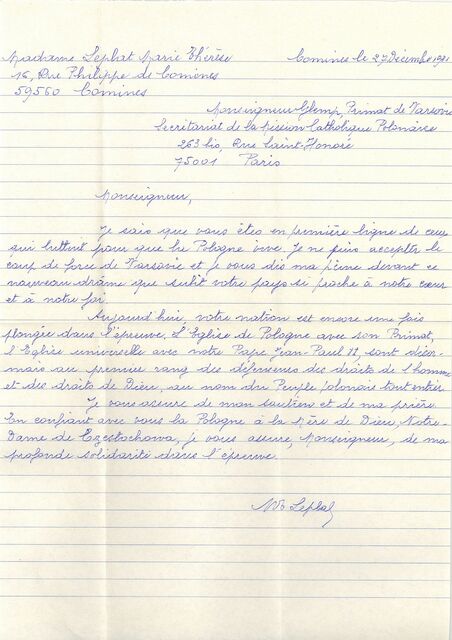 Madame Lephat Marie Thérèse
Comines le 27 Décembre 1981
16, Rue Philippe de Comènes
59560 Comines
Monseigneur Glemp, Primat de Varsovie
Secrétariat de la Mission Catholique Polonaise
263 bis, Rue Saint-Honoré
75001 Paris
Monseigneur,
Je sais que vous êtes en première ligne de ceux
qui luttent pour que la Pologne vive. Je ne puis accepter le
coup de force de Varsovie et je vous dis ma peine devant ce
nouveau drame que subit votre pays si proche à notre cœur
et à notre foi.
Aujourd'hui, votre nation est encore une fois
plongée dans l'épreuve. L'Eglise de Pologne avec son Primat,
l'Eglise universelle avec notre Pape Jean-Paul II, sont désor-
mais au premier rang des défenseurs des droits de l'homme
et des droits de Dieu, au nom du Peuple polonais tout entier.
Je vous assure de mon soutien et de ma prière.
En confiant avec vous la Pologne à la Mère de Dieu, Notre-
Dame de Czestochowa, je vous assure, Monseigneur, de ma
profonde solidarité dans l'épreuve.